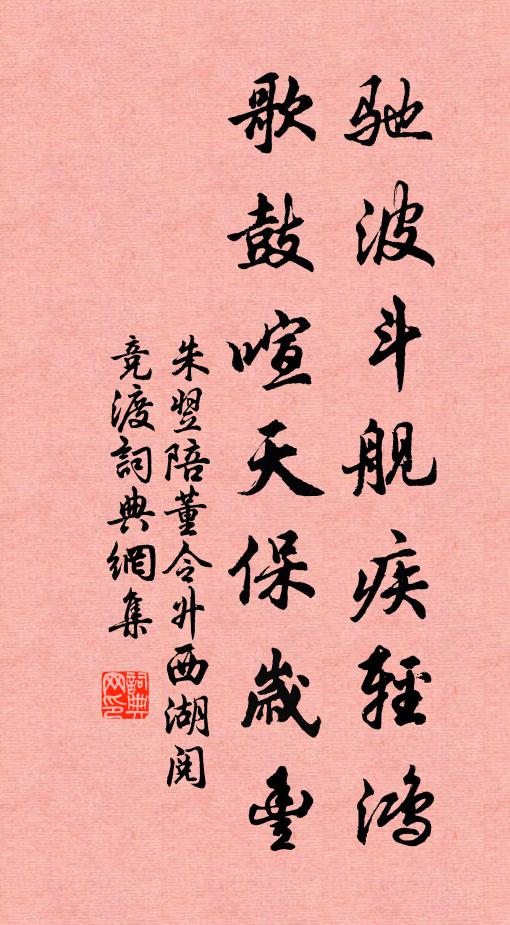 驰波斗舰疾輕鴻
歌鼓喧天保歲豊
朱翌陪董令升西湖阅
競渡詞典網集
詞典网印